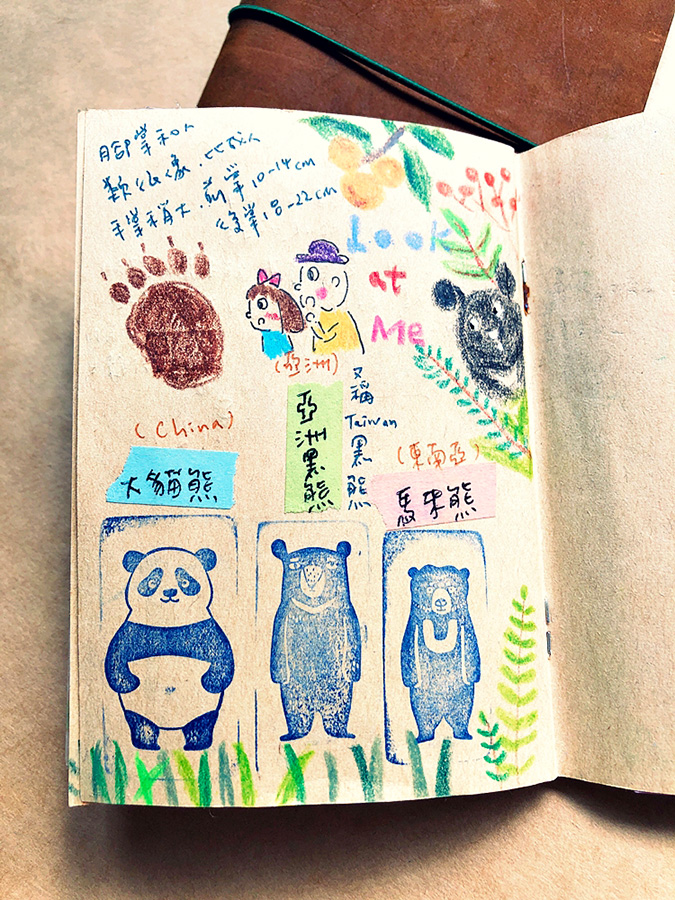 腳掌和人
類很像．比成人
手掌稍大．前掌10-14cm
後掌18-22cm
Look
at
Me
(亞洲)
亞洲黑熊
又稱
Taiwan
黑熊
(China)
大貓熊
(東南亞)
馬來熊